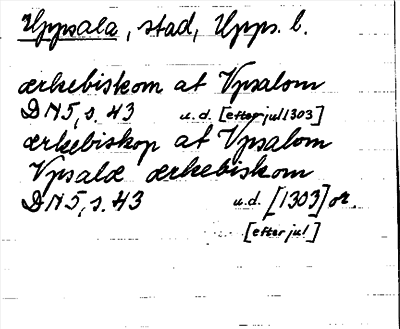 Uppsala, stad, Upps. l.
ærkebiskom at Vpsalom
DN5, s. 43 u.d. [efter jul 1303]
ærkebiskop at Vpsalom
Vpsalæ ærkebiskom
DN5, s. 43 u.d. [1303] or.
[efter jul]